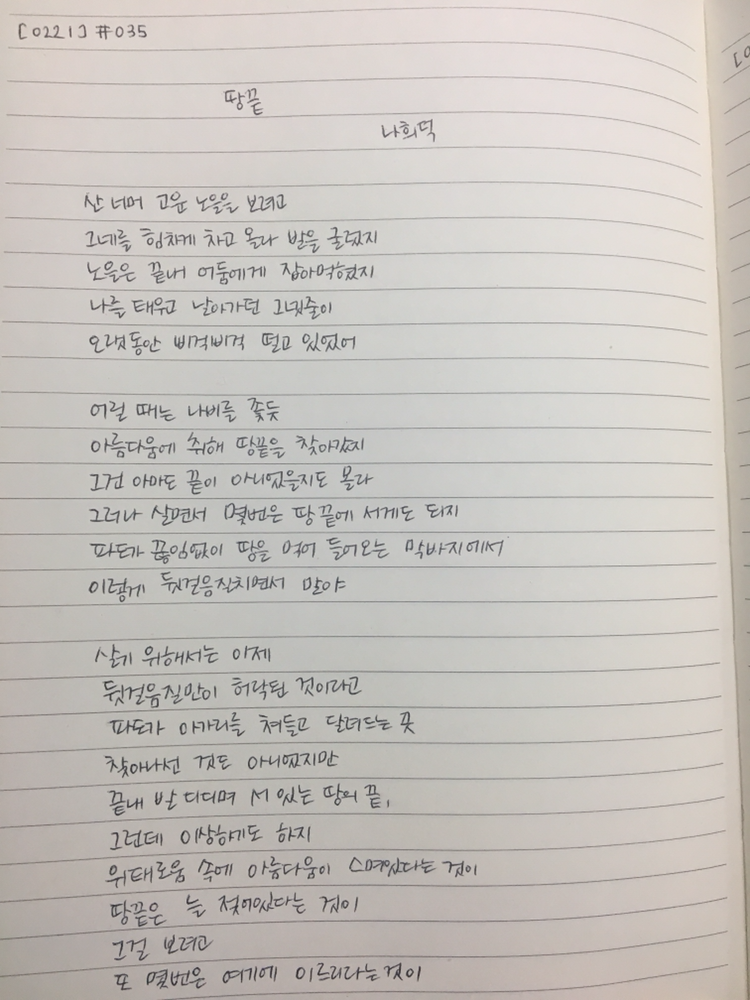 [0221] #035
땅끝
나희덕
산 너머 고운 노을을 보려고
그네를 힘차게 차고 올라 발을 굴렀지
노을은 끝내 어둠에게 잡아먹혔지
나를 태우고 날아가던 그넷줄이
오랫동안 삐걱삐걱 떨고 있었어
어릴 때는 나비를 쫓듯
아름다움에 취해 땅끝을 찾아갔지
그건 아마도 끝이 아니었을지도 몰라
그러나 살면서 몇번은 땅 끝에 서게도 되지
파도가 끊임없이 땅을 먹어 들어오는 막바지에서
이렇게 뒷걸음질치면서 말야
살기 위해서는 이제
뒷걸음질만이 허락된 것이라고
파도가 아가리를 쳐들고 달려드는 곳
찾아나선 것도 아니었지만
끝내 발 디디며 서 있는 땅의 끝,
그런데 이상하기도 하지
위태로움 속에 아름다움이 스며있다는 것이
땅끝은 늘 젖어있다는 것이
그걸 보려고
또 몇번은 여기에 이르리라는것이